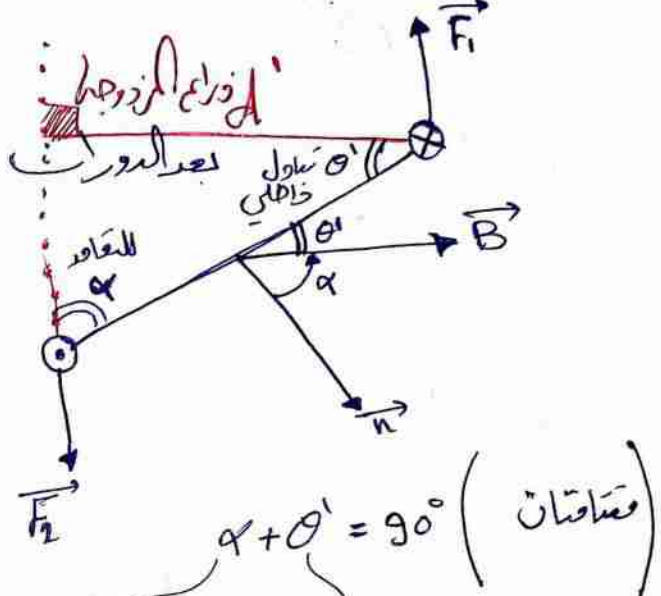 F₁
ذراع المزدوجة d'
بعد الدوران
تبادل داخلي θ'
θ'
B
للتعامد
α
α
n
F₂
α + θ' = 90° (متتامتان)